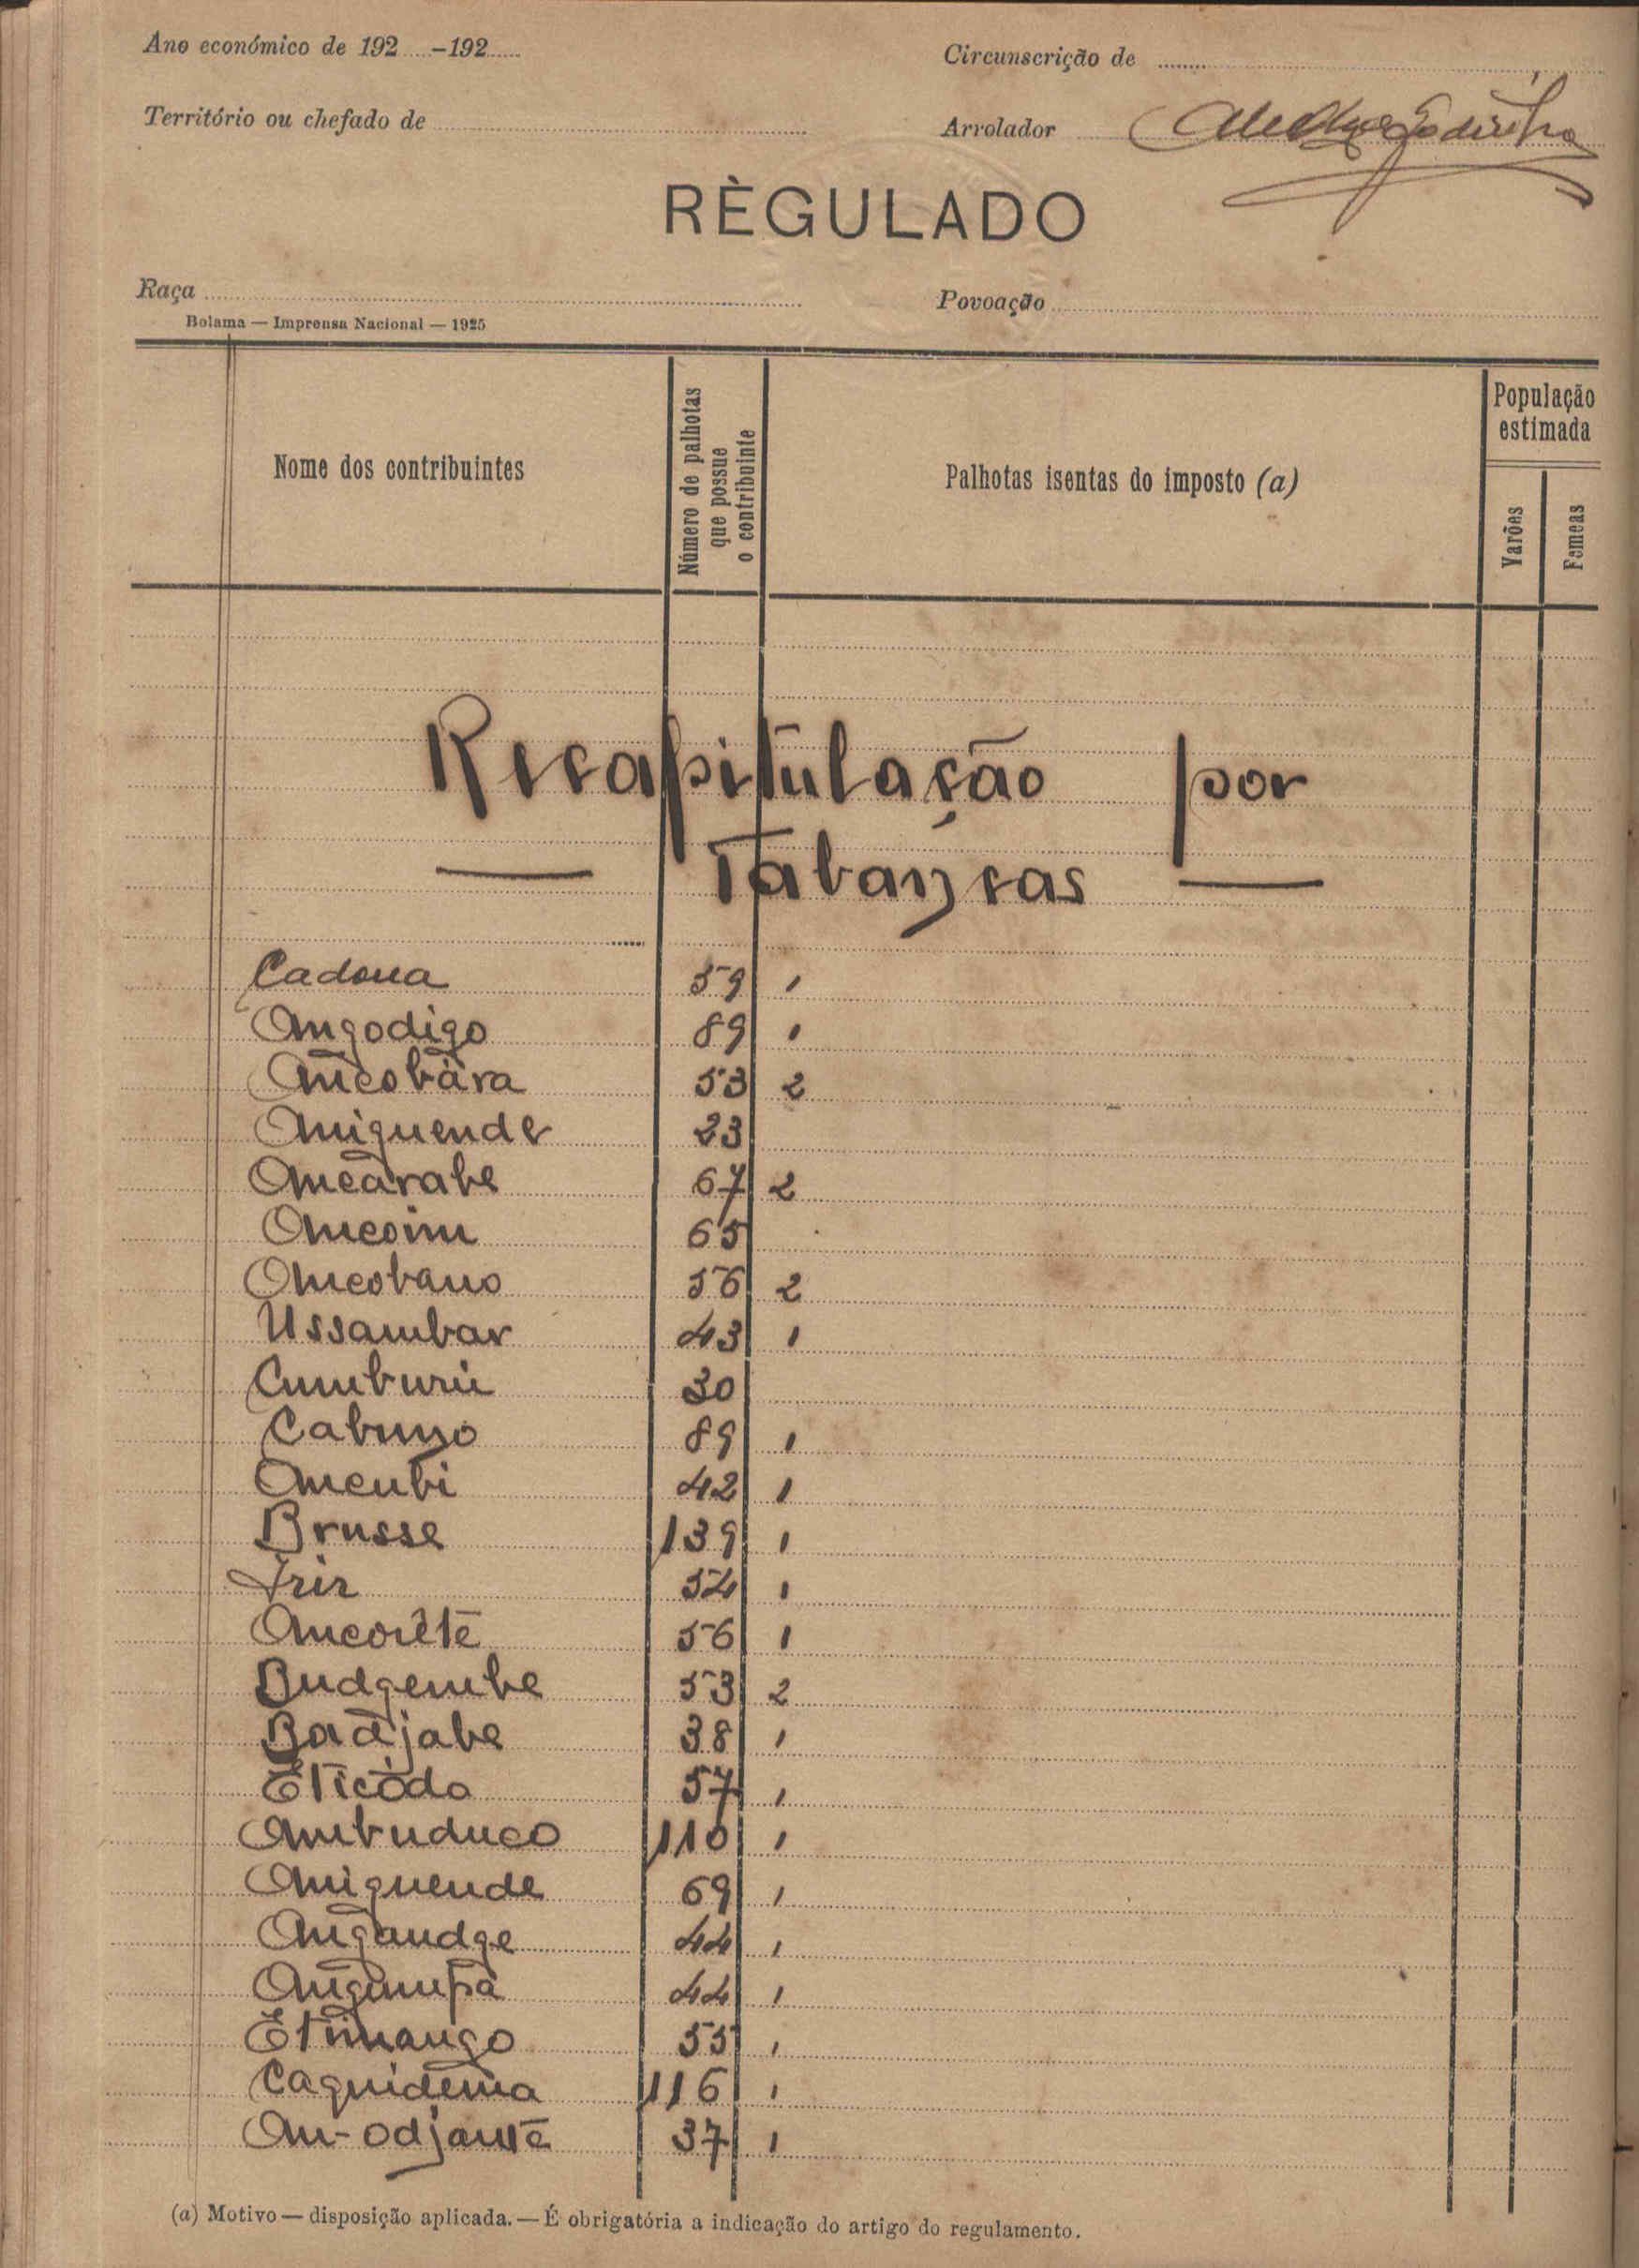 Ano económico de 192.....-192.....
Circunscrição de
Território ou chefado de
Arrolador
RÈGULADO
Raça
Povoação
Bolama — Imprensa Nacional — 1925
Nome dos contribuintes
Número de palhotas que possue o contribuinte
Palhotas isentas do imposto (a)
População estimada
Varões
Femeas
Recapitulação por
— Tabancas —
Cadona 59 1
Angodigo 89 1
Ancobára 53 2
Aniguende 23
Ancarabe 67 2
Ancoim 65
Ancobano 56 2
Ussambar 43 1
Cumburú 30
Cabuno 89 1
Ancubi 42 1
Brusse 139 1
54 1
Ancorête 56 1
Budgembe 53 2
Bodjabe 38 1
Eticódo 57 1
Ambuduco 110 1
Aniguende 69 1
Angandge 44 1
Angumpá 44 1
Etimango 55 1
Caquidema 116 1
An-odjante 37 1
(a) Motivo — disposição aplicada. — É obrigatória a indicação do artigo do regulamento.